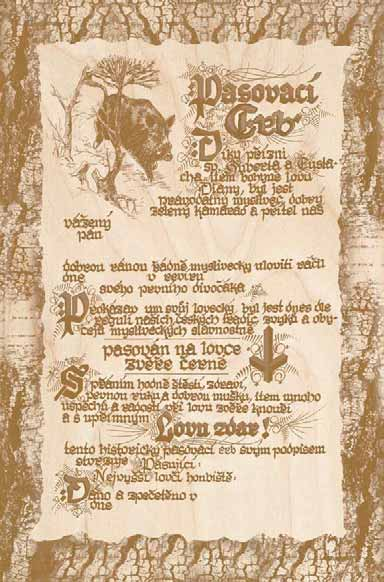 Pasovací
Erb
Díky přízni
sv. Huberta a Eusta-
cha, ttem bohyně lovu
Diany, byl jest
pravodatný myslivec, dobrý
zelený kamarád a přítel náš
vážený
pan
dobrou ranou řádně myslivecky uloviti ráčil
dne v revíru
svého prvního divočáka
Prokázav um svůj lovecký, byl jest dnes dle
regulí našich českých tradic, zvyků a oby-
čejů mysliveckých slavnostně
pasován na lovce
zvěře černé
S přáním hodně štěstí, zdraví,
pevnou ruku a dobrou mušku, ttem mnoho
úspěchů a radosti při lovu zvěře kňouří
a s upřímným
Lovu zdar!
tento historický pasovací erb svým podpisem
stvrzuje
Pasující:
Nejvyšší lovčí honbiště:
Dáno a zpečetěno v
dne